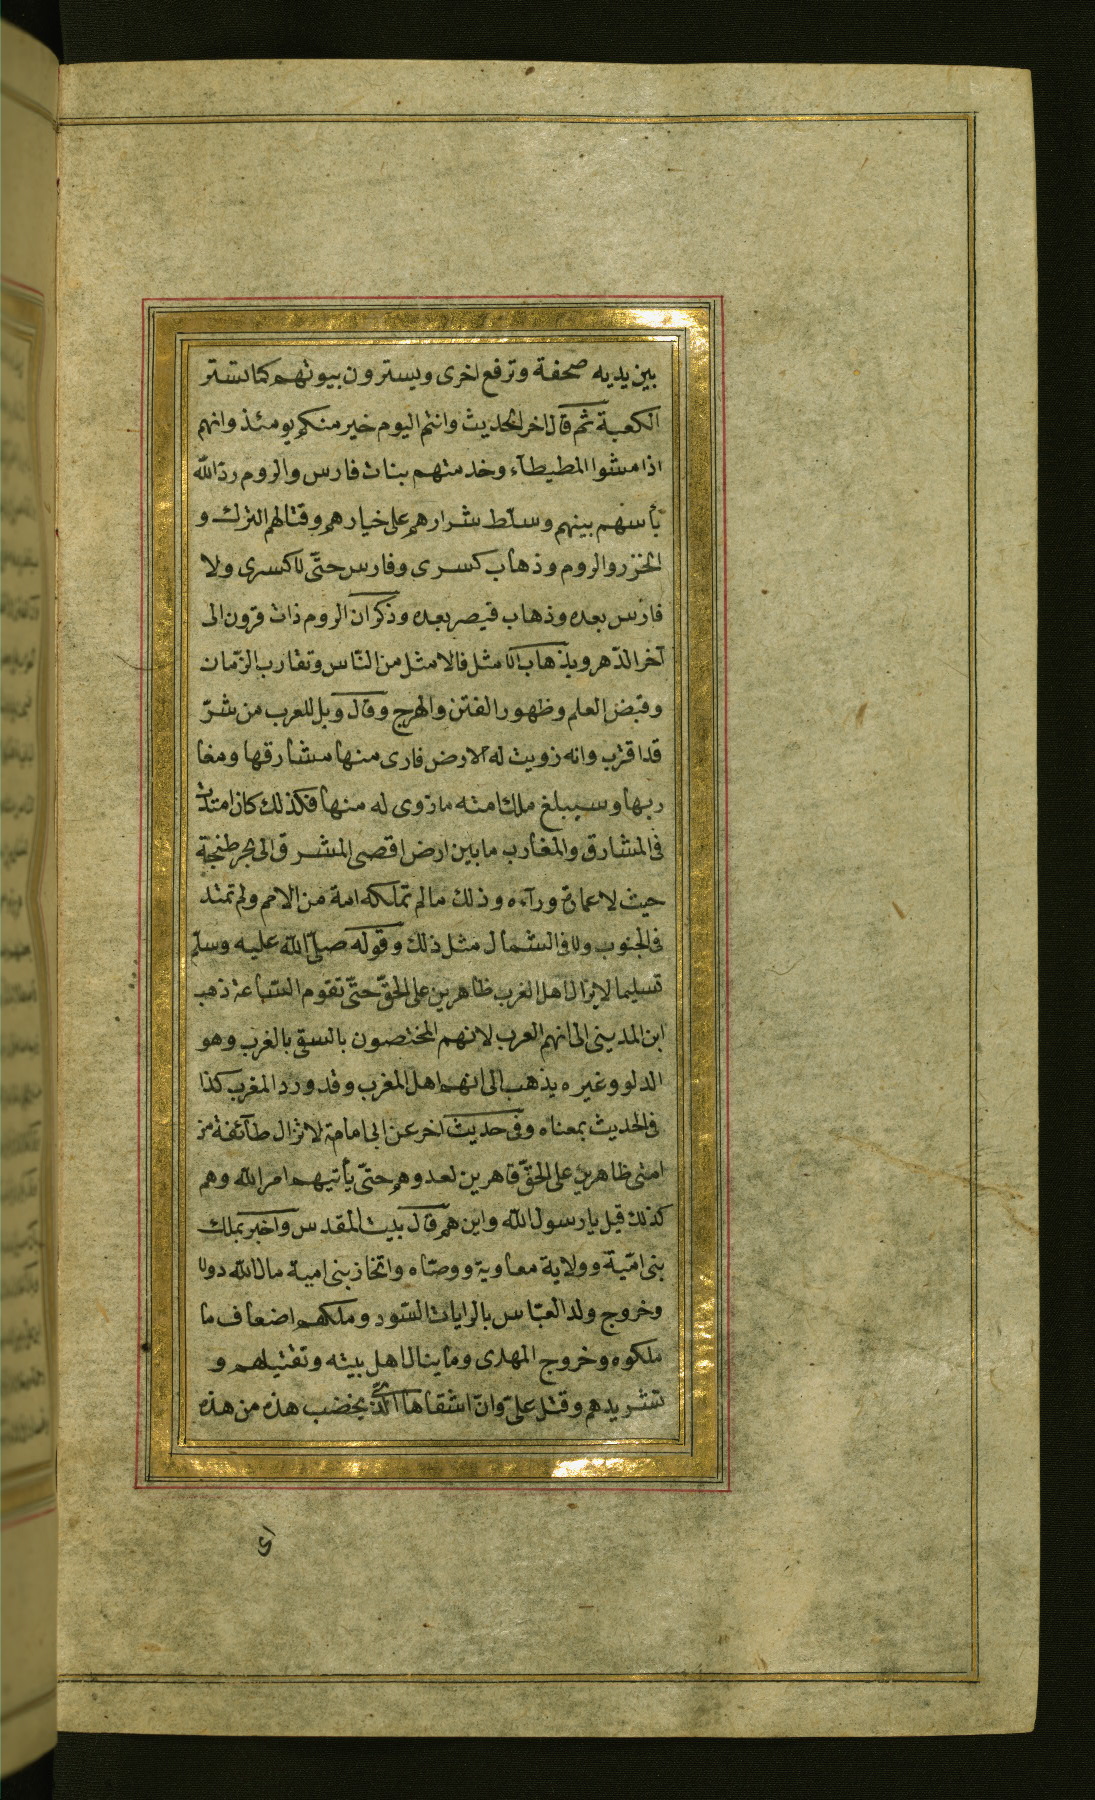 بين يديه صحفة وترفع اخرى ويسترون بيوتهم كما تستر
الكعبة ثم قال اخر الحديث وانتم اليوم خير منكم يومئذ وانهم
اذا مشوا المطيطآء وخدمتهم بنات فارس والروم ردّ الله
بأسهم بينهم وسلّط شرارهم على خيارهم وقتالهم الترك و
الخزر والروم وذهاب كسرى وفارس حتّى لا كسرى ولا
فارس بعده وذهاب قيصر بعده وذكر ان الروم ذات قرون الى
آخر الدّهر وبذهاب الامثل فالامثل من النّاس وتقارب الزّمان
وقبض العلم وظهور الفتن والهرج وقال ويل للعرب من شرّ
قد اقترب وانه زويت له الارض فارى منها مشارقها ومغا
ربها وسيبلغ ملك امته ما زوى له منها فكذلك كان امتدّت
فى المشارق والمغارب ما بين ارض اقصى المشرق الى بحر طنجة
حيث لا عمارة ورآءه وذلك ما لم تملكه امة من الامم ولم تمتد
فى الجنوب ولا فى الشمال مثل ذلك وقوله صلّى الله عليه وسلّم
تسليما لا يزال اهل الغرب ظاهرين على الحقّ حتّى تقوم السّاعة ذهب
ابن المدينى الى انهم العرب لانهم المختصون بالسقى بالغرب وهو
الدلو وغيره يذهب الى انهم اهل المغرب وقد ورد المغرب كذا
فى الحديث بمعناه وفى حديث آخر عن ابى امامة لا تزال طآئفة من
امتى ظاهرين على الحقّ قاهرين لعدوهم حتّى يأتيهم امر الله وهم
كذلك قيل يا رسول الله واين هم قال بيت المقدس واخبر بملك
بنى اميّة وولاية معاوية ووصّاه واتخاذ بنى امية مال الله دولا
وخروج ولد العبّاس بالرايات السّود وملكهم اضعاف ما
ملكوه وخروج المهدى وما ينال اهل بيته وتقتيلهم و
تشريدهم وقتل علىّ وانّ اشقاها الّذى يخضب هذه من هذه
اى